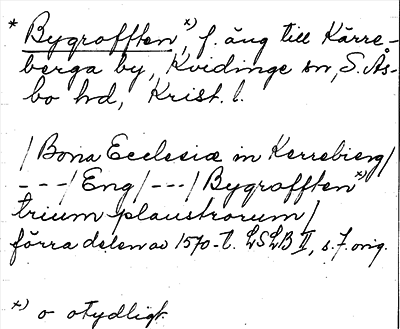 * Bygrofften x), f. äng till Kärre-
berga by, Kvidinge sn, S. Ås-
bo hd, Krist. l.
/Bona Ecclesiæ in Kerrebierg/
---/Eng/---/Bygrofften x)
trium plaustrorum/
förra delen av 1570-t. LSLB II, s. 7. orig.
x) o otydligt.